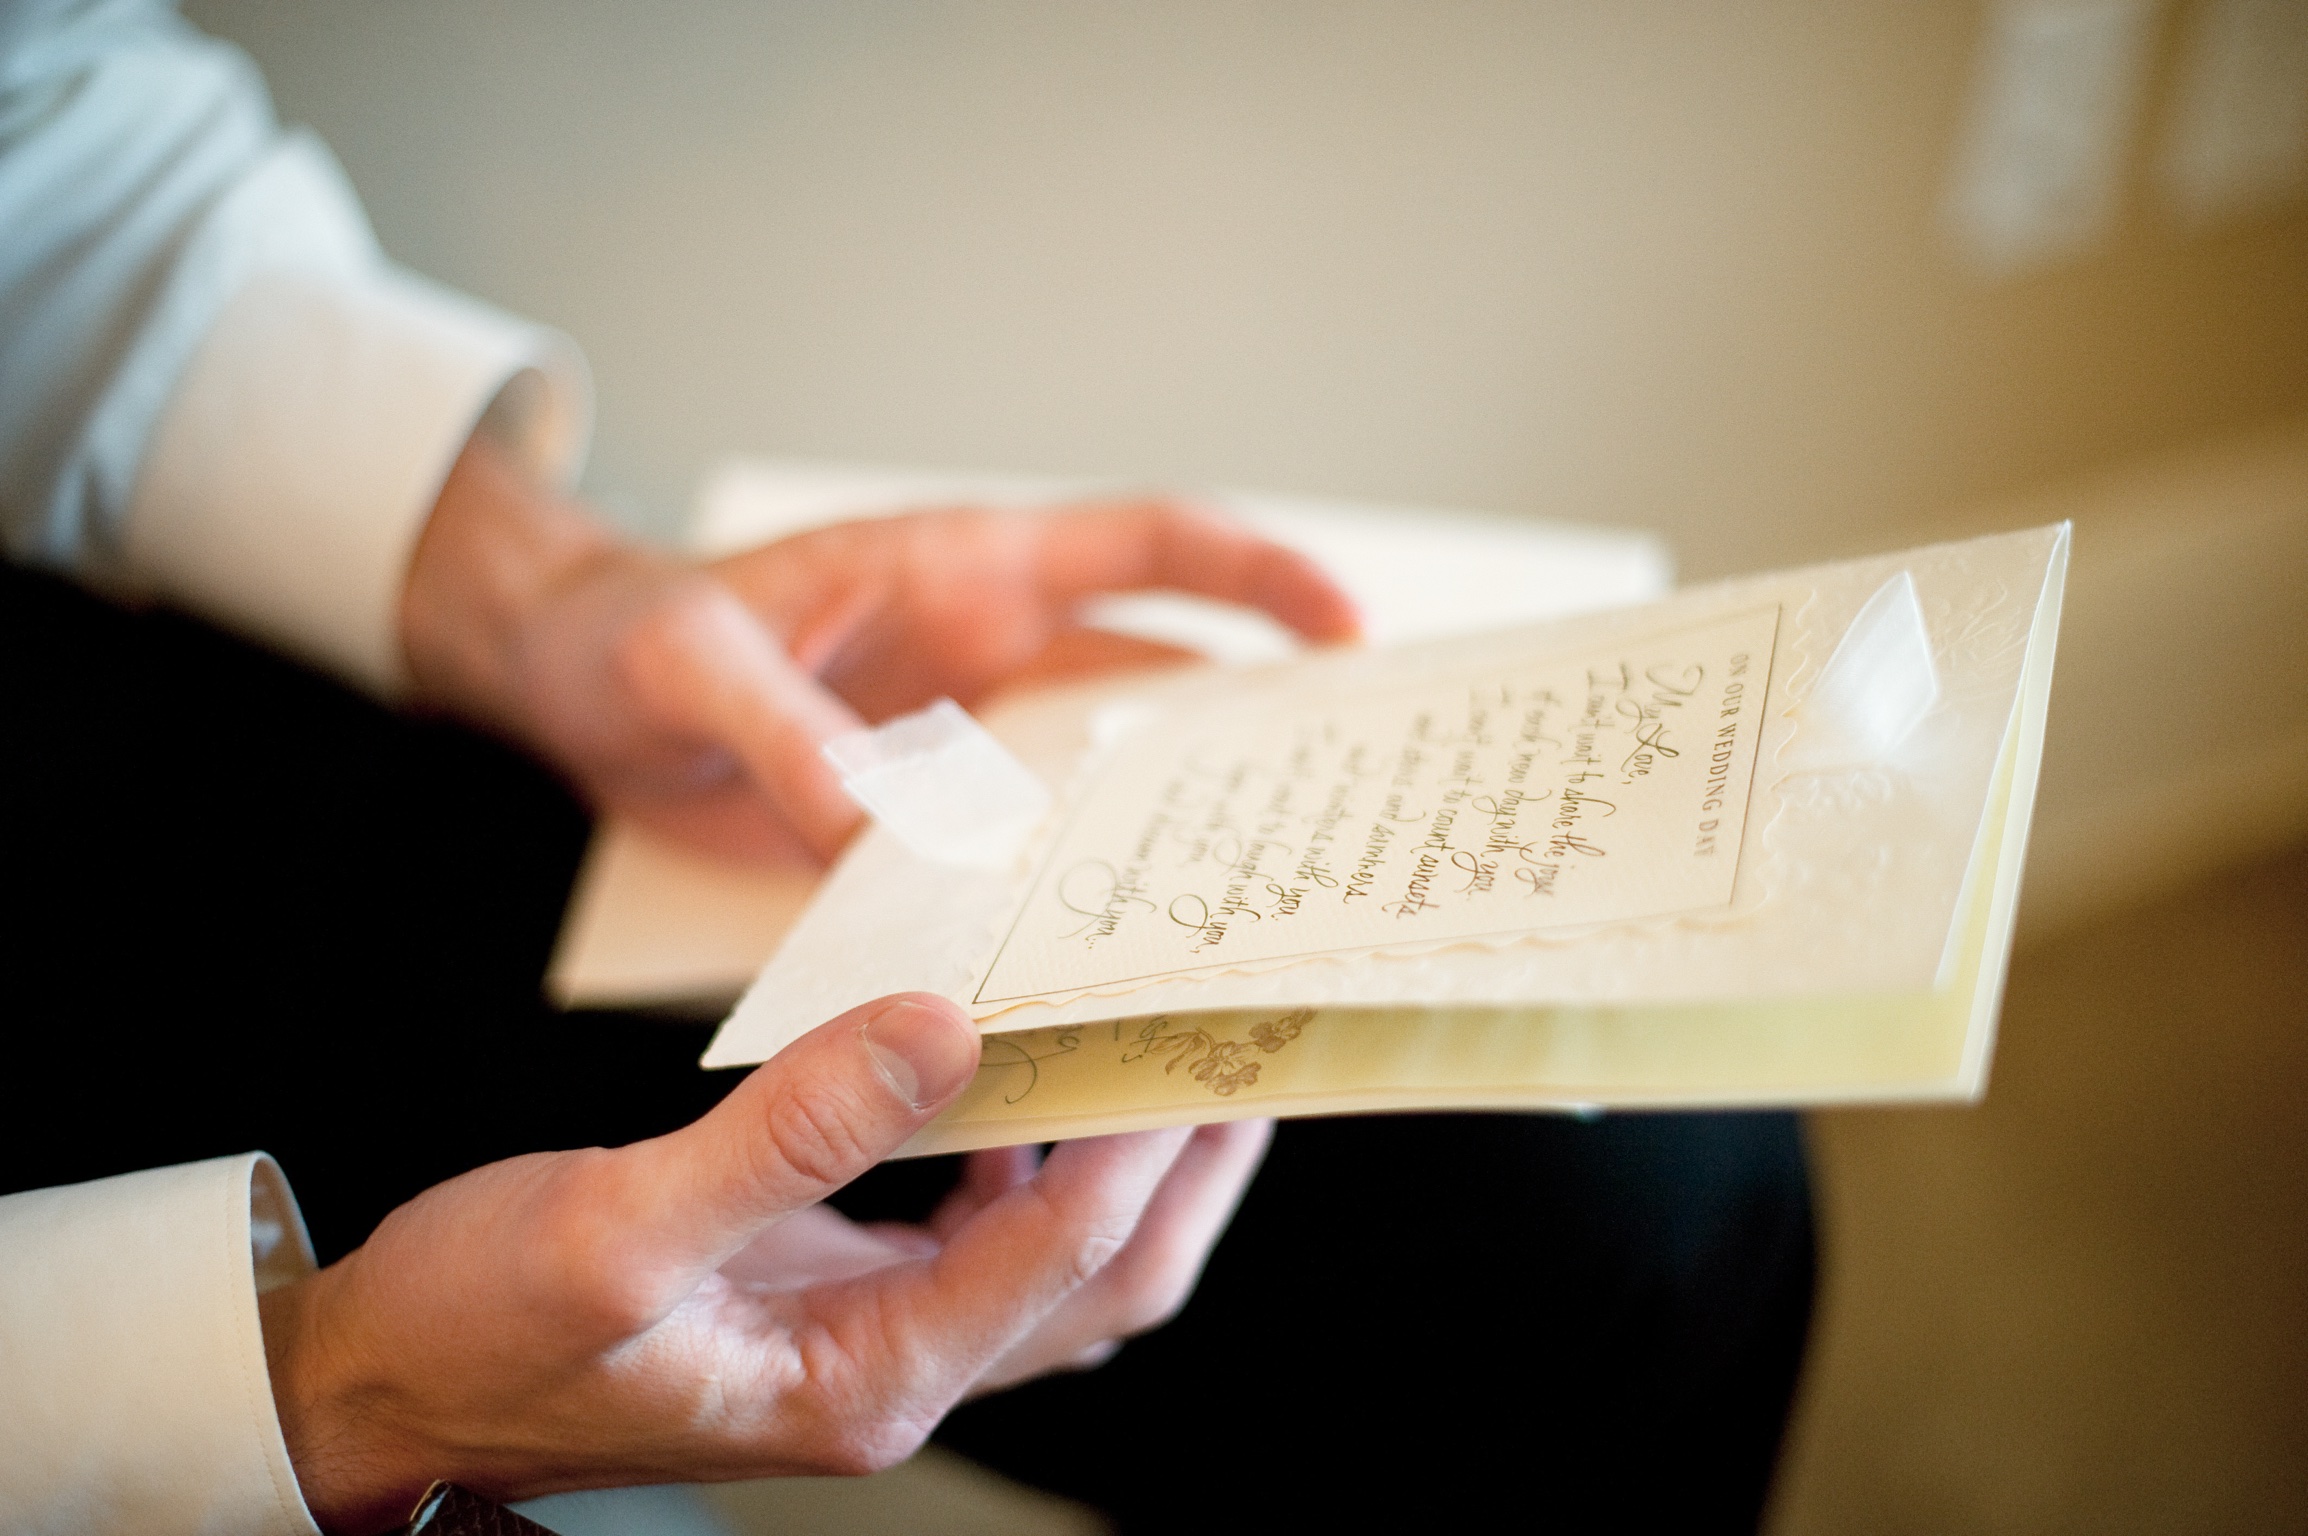 ON OUR WEDDING DAY
My Love,
I can't wait to share the joy
of each new day with you.
I can't wait to count sunsets
and stars and summers
and winters with you.
I can't wait to laugh with you,
with you
and dream with you...